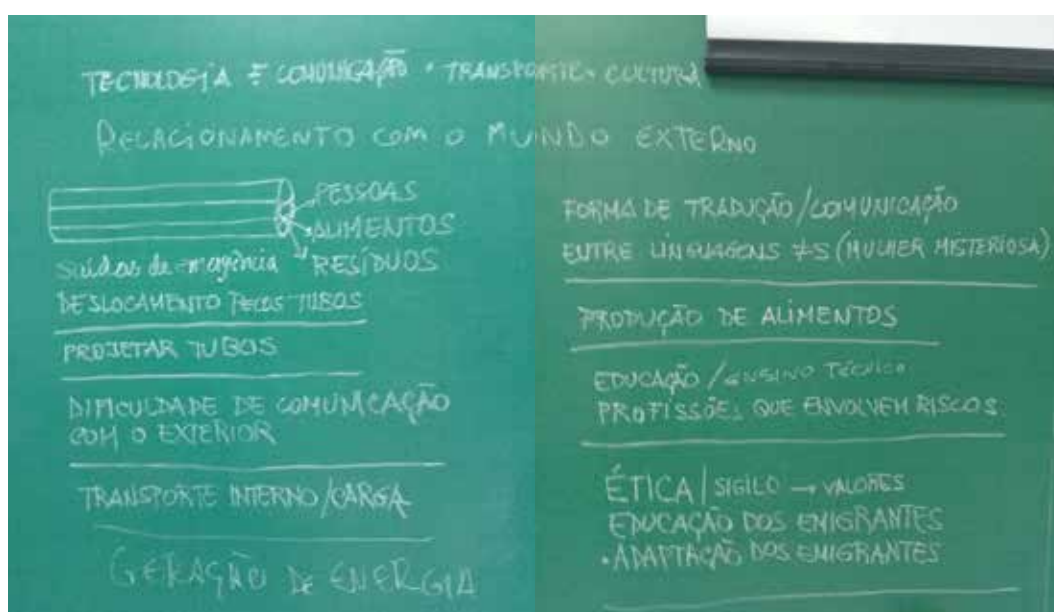 TECNOLOGIA E COMUNICAÇÃO • TRANSPORTE • CULTURA
RELACIONAMENTO COM O MUNDO EXTERNO
PESSOAS
ALIMENTOS
RESÍDUOS
Saídas de emergência
DESLOCAMENTO PELOS TUBOS
PROJETAR TUBOS
DIFICULDADE DE COMUNICAÇÃO
COM O EXTERIOR
TRANSPORTE INTERNO/CARGA
GERAÇÃO DE ENERGIA
FORMA DE TRADUÇÃO/COMUNICAÇÃO
ENTRE LINGUAGENS ≠S (MULHER MISTERIOSA)
PRODUÇÃO DE ALIMENTOS
EDUCAÇÃO / ENSINO TÉCNICO
PROFISSÕES QUE ENVOLVEM RISCOS
ÉTICA / SIGILO → VALORES
EDUCAÇÃO DOS EMIGRANTES
• ADAPTAÇÃO DOS EMIGRANTES